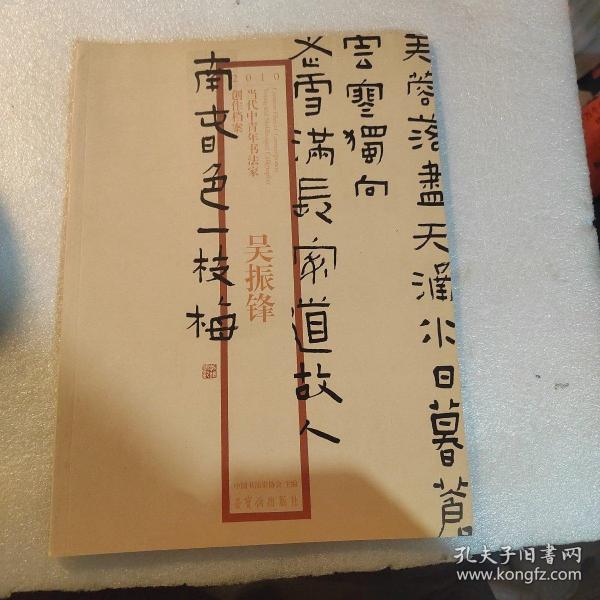 芙蓉落盡天涵水日暮蒼
雲寒獨向
老雪滿長安道故人
南春色一枝梅
2010
当代中青年书法家
创作档案
吴振锋
中国书法家协会 主编
榮寶齋出版社
孔夫子旧书网
www.kongfz.com